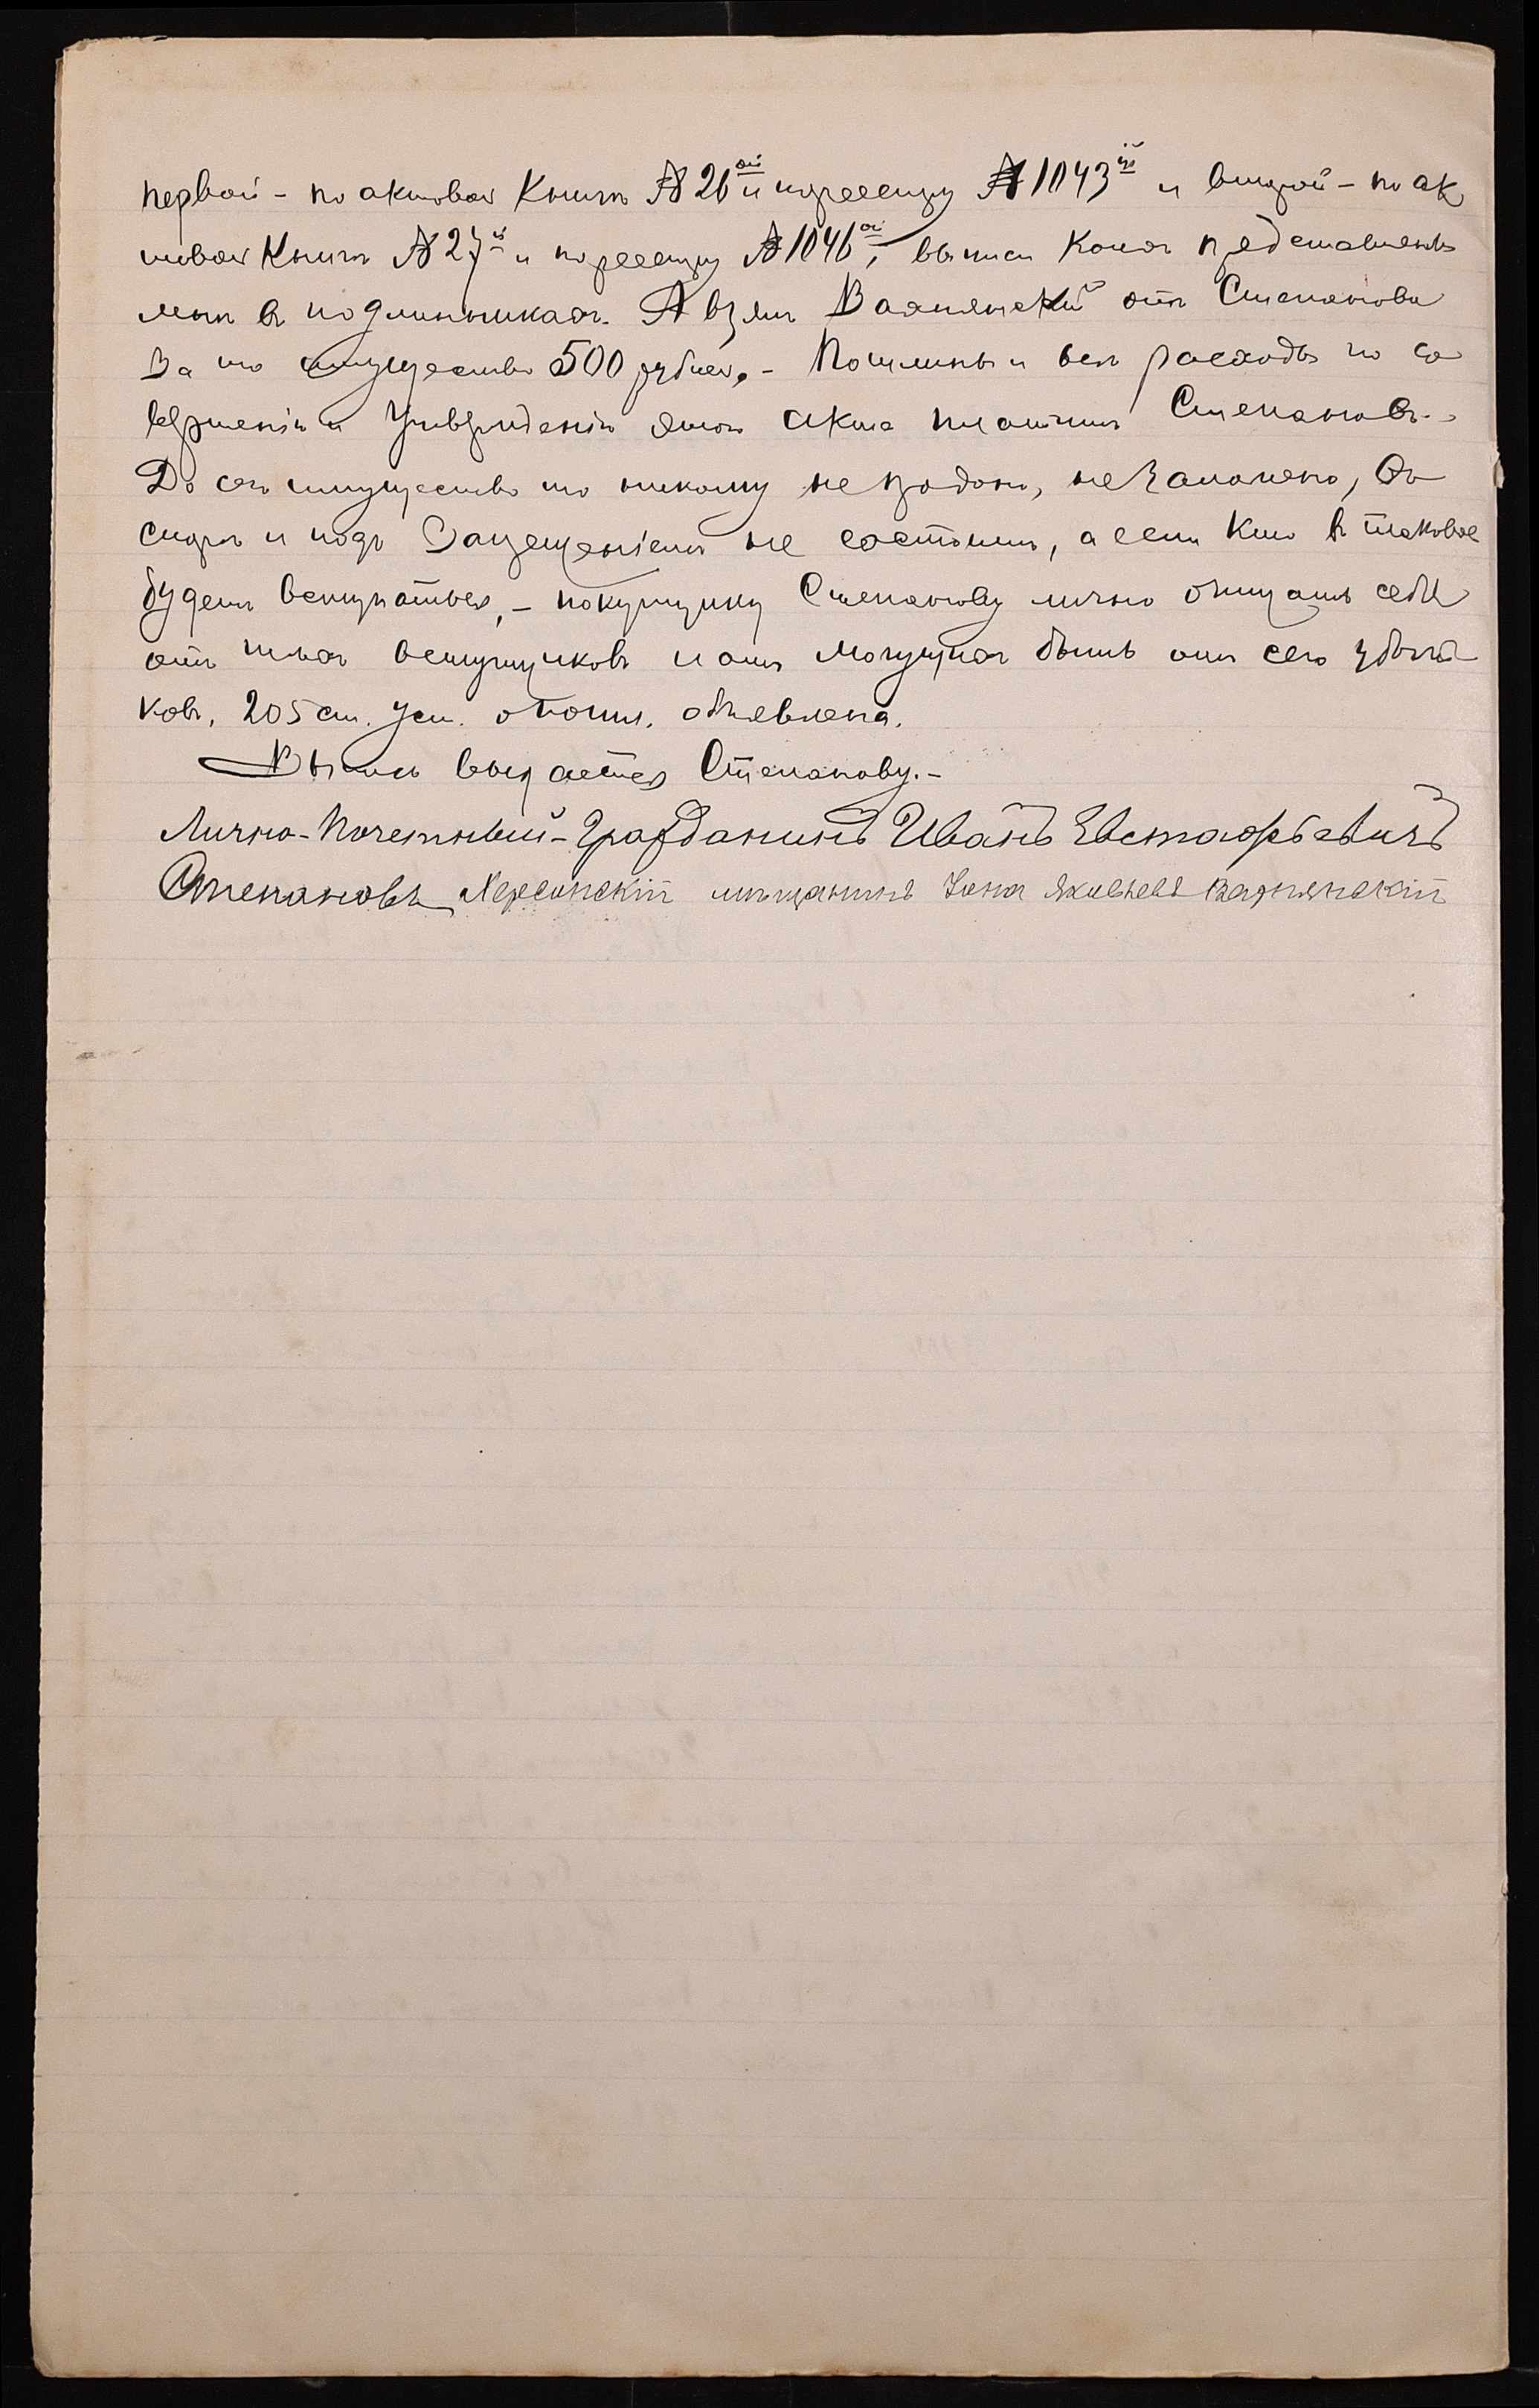 первой - по актовой книгѣ № 26ой и по реестру № 1043ій и второй - по ак
товой книгѣ № 27й и по реестру № 1046ой, выписи коихъ представлены
мнѣ въ подлинникахъ. А взялъ Вахнянскій отъ Степанова
за то имущество 500 рублей. - Пошлины и всѣ расходы по со
вершенію и утвержденію этого акта платитъ Степановъ. -
До сего имущество то никому не продано, не заложено, въ
спорѣ и подъ запрещеніемъ не состоитъ, а если кто въ таковое
будетъ вступаться, - покупщику Степанову лично очищать себя
отъ тѣхъ вступщиковъ и отъ могущихъ быть отъ сего убыт
ковъ, 205 ст. уст. о пошл. объявлена.
Выпись выдается Степанову. -
Лично-Почетный-Гражданинъ Иванъ Евстафьевичъ
Степановъ Херсонскій мѣщанинъ Іона Яковлевъ Вахнянскій